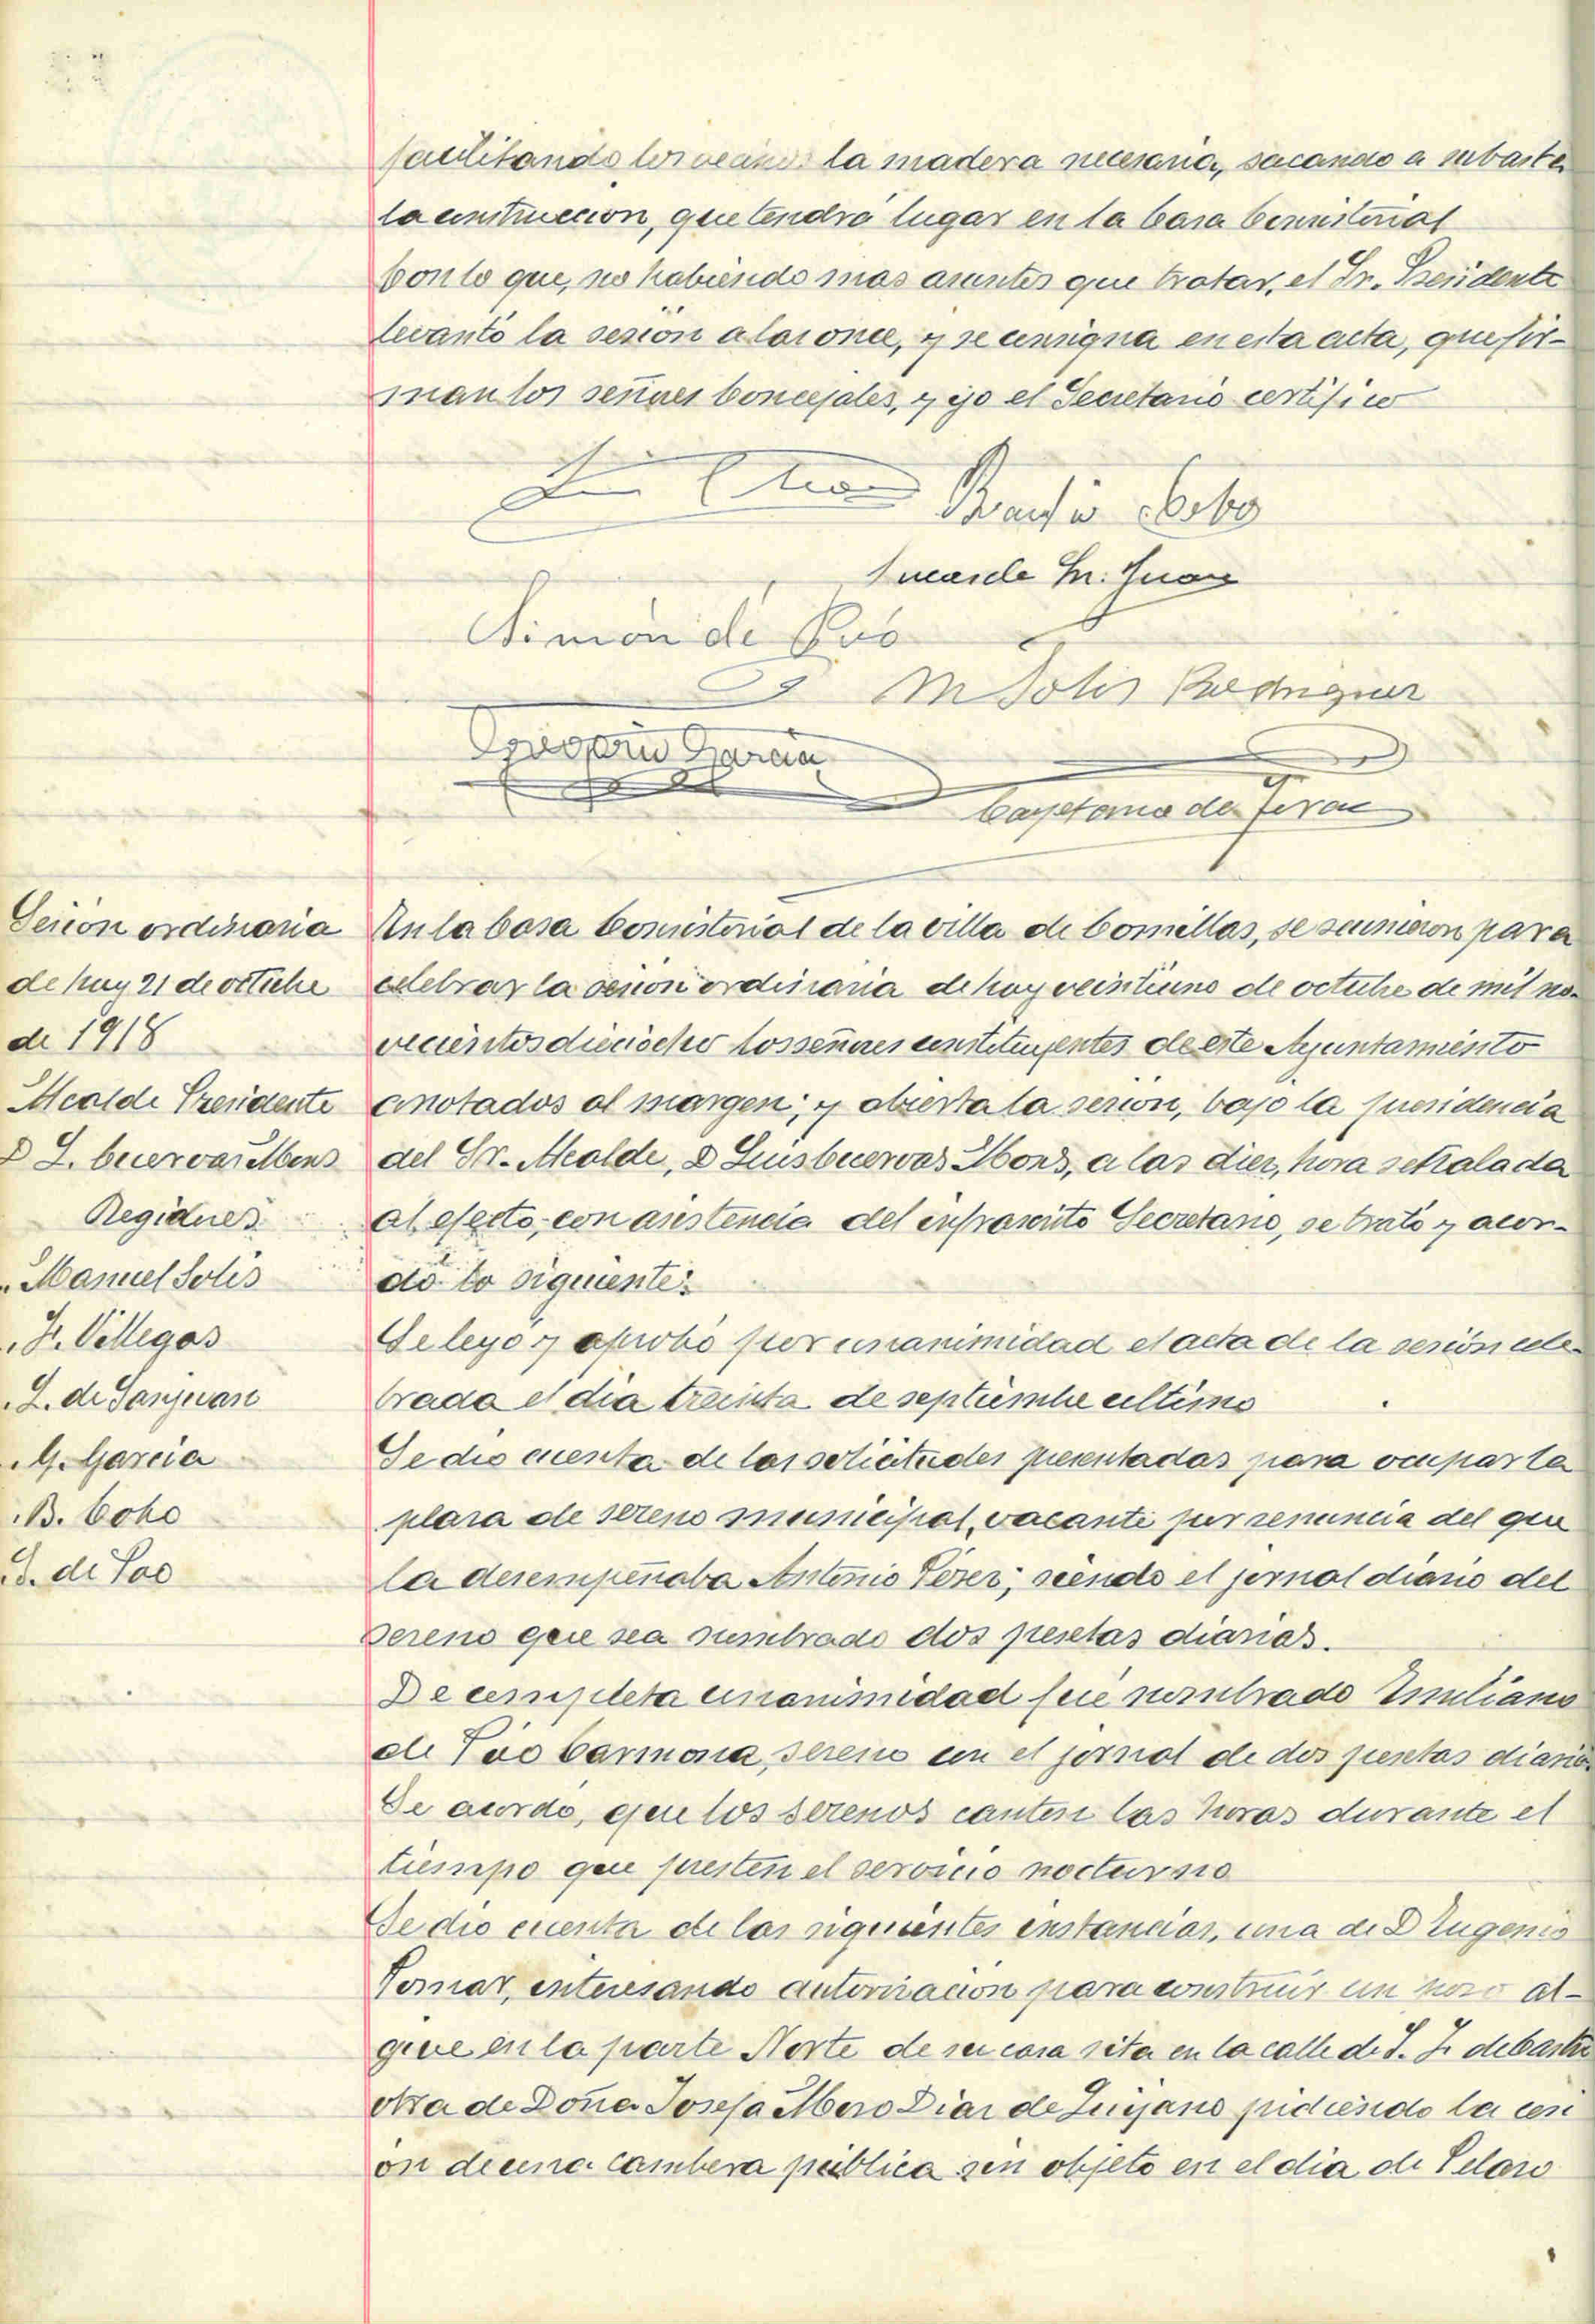 facilitando los vecinos la madera necesaria, sacando a subasta
la construccion, que tendrá lugar en la Casa Consistorial
Con lo que, no habiendo mas asuntos que tratar, el Sr. Presidente
levantó la sesión a las once, y se consigna en esta acta, que fir-
man los señores Concejales, y yo el Secretario certifico
Bautista Cobo
Lucas de Sn. Juan
Simón de Póo
M Solis Rodriguez
Gregorio Garcia
Cayetano de Teran
Sesión ordinaria
de hoy 21 de octubre
de 1918
Alcalde Presidente
D L. Cuervas Mons
Regidores
" Manuel Solis
" F. Villegas
" L. de Sanjuan
" G. Garcia
" B. Cobo
" S. de Poo
En la Casa Consistorial de la villa de Comillas, se reunieron para
celebrar la sesion ordinaria de hoy veintiuno de octubre de mil no-
vecientos dieciocho los señores constituyentes de este Ayuntamiento
anotados al margen; y abierta la sesion, bajo la presidencia
del Sr. Alcalde, D Luis Cuervas Mons, a las diez, hora señalada
al efecto, con asistencia del infrascrito Secretario, se trató y acor-
dó lo siguiente:
Se leyó y aprobó por unanimidad el acta de la sesión cele-
brada el dia treinta de septiembre ultimo
Se dio cuenta de las solicitudes presentadas para ocupar la
plaza de sereno municipal, vacante por renuncia del que
la desempeñaba Antonio Pérez; siendo el jornal diario del
sereno que sea nombrado dos pesetas diarias.
De completa unanimidad fué nombrado Emiliano
de Póo Carmona, sereno con el jornal de dos pesetas diarias.
Se acordó, que los serenos canten las horas durante el
tiempo que presten el servicio nocturno
Se dio cuenta de las siguientes instancias, una de D Eugenio
Pomar, interesando autorización para construir un pozo al-
give en la parte Norte de su casa sita en la calle de J. F. de Castro
otra de Doña Josefa Moro Diaz de Quijano pidiendo la cesi
ón de una cambera pública sin objeto en el dia de Peloro